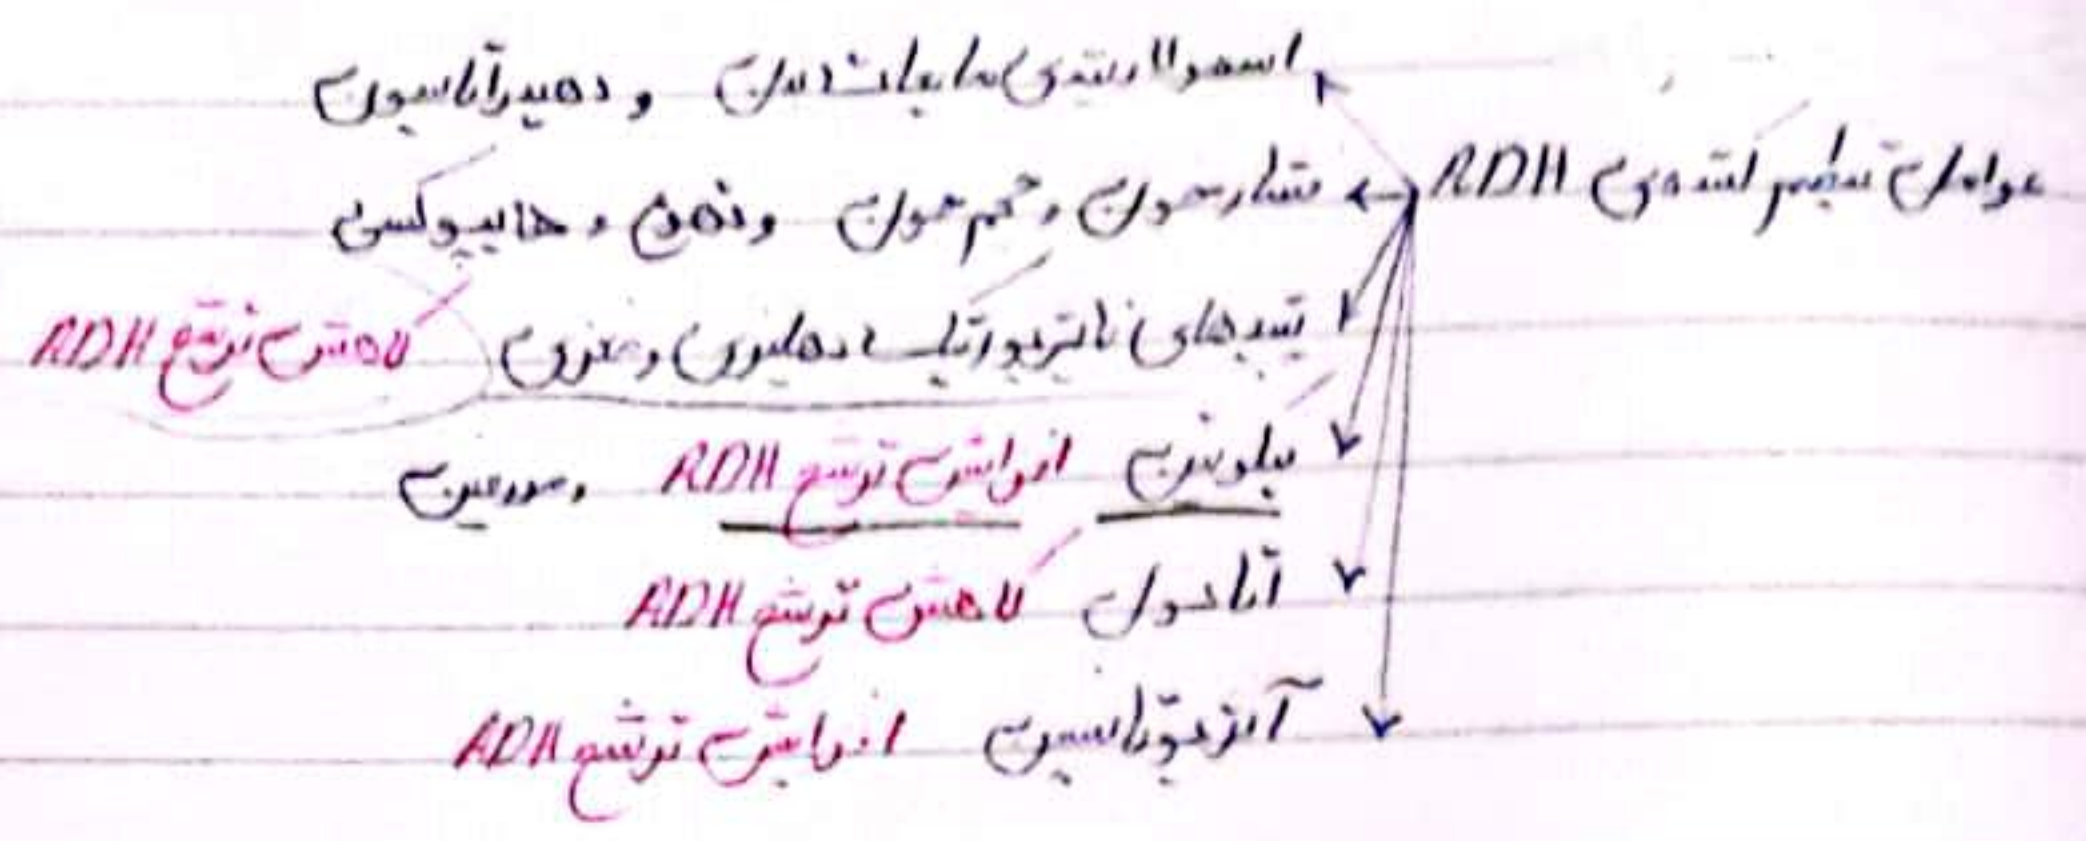 عوامل تنظیم کننده‌ی ADH
اسمولاریته‌ی مایعات بدن و دهیدراتاسیون
فشار خون و حجم خون و تهوع و هایپوکسی
پپتیدهای ناتریورتیک دهلیزی و مغزی کاهش ترشح ADH
نیکوتین افزایش ترشح ADH و مورفین
اتانول کاهش ترشح ADH
آنژیوتانسین افزایش ترشح ADH